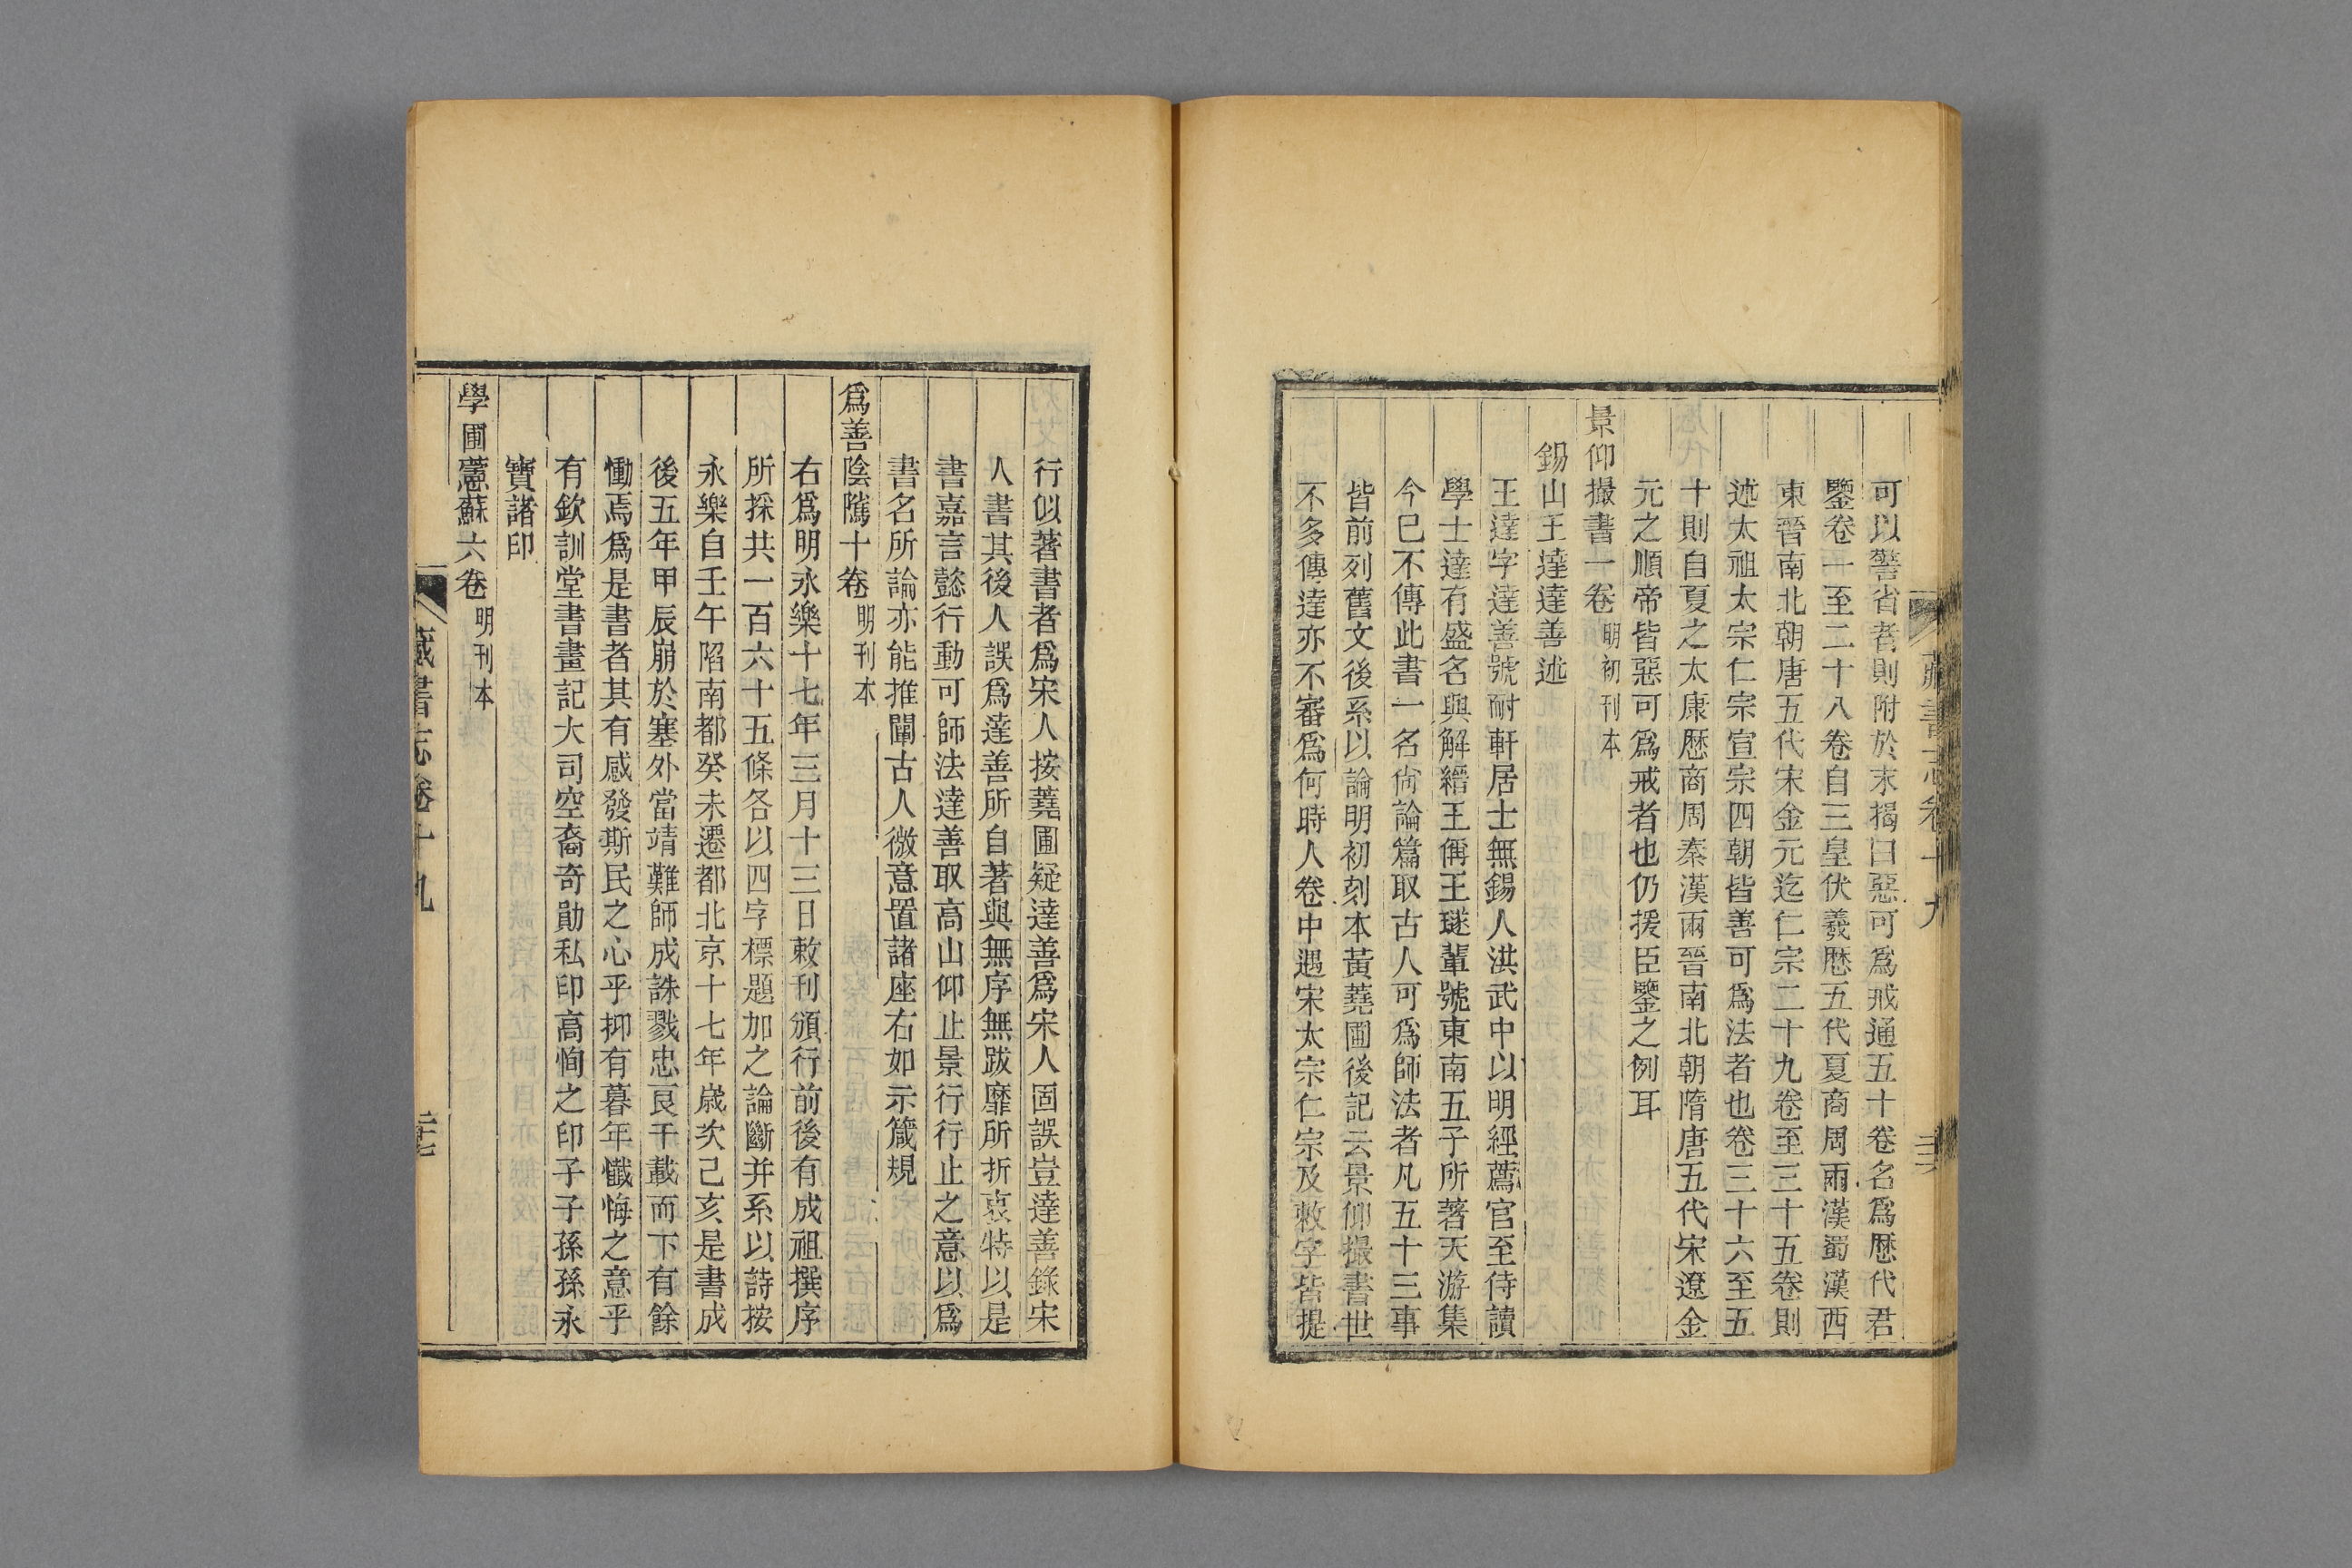 藏書志卷十九
可以警省者則附於末揭曰惡可爲戒通五十卷名爲歷代君
鑒卷一至二十八卷自三皇伏羲歷五代夏商周兩漢蜀漢西
東晉南北朝唐五代宋金元迄仁宗二十九卷至三十五卷則
述太祖太宗仁宗宣宗四朝皆善可爲法者也卷三十六至五
十則自夏之太康歷商周秦漢兩晉南北朝隋唐五代宋遼金
元之順帝皆惡可爲戒者也仍援臣鑒之例耳
景仰撮書一卷 明初刊本
錫山王達達善述
王達字達善號耐軒居士無錫人洪武中以明經薦官至侍讀
學士達有盛名與解縉王偁王璲輩號東南五子所著天游集
今已不傳此書一名尙論篇取古人可爲師法者凡五十三事
皆前列舊文後系以論明初刻本黃蕘圃後記云景仰撮書世
不多傳達亦不審爲何時人卷中遇宋太宗仁宗及敕字皆提
行似著書者爲宋人按蕘圃疑達善爲宋人固誤豈達善錄宋
人書其後人誤爲達善所自著與無序無跋靡所折衷特以是
書嘉言懿行動可師法達善取高山仰止景行行止之意以爲
書名所論亦能推闡古人微意置諸座右如示箴規
爲善陰隲十卷 明刊本
右爲明永樂十七年三月十三日敕刊頒行前後有成祖撰序
所採共一百六十五條各以四字標題加之論斷并系以詩按
永樂自壬午陷南都癸未遷都北京十七年歲次己亥是書成
後五年甲辰崩於塞外當靖難師成誅戮忠良千載而下有餘
慟焉爲是書者其有感發斯民之心乎抑有暮年懺悔之意乎
有欽訓堂書畫記大司空裔奇勛私印高恂之印子子孫孫永
寶諸印
學圃蕙蘇六卷 明刊本
藏書志卷十九